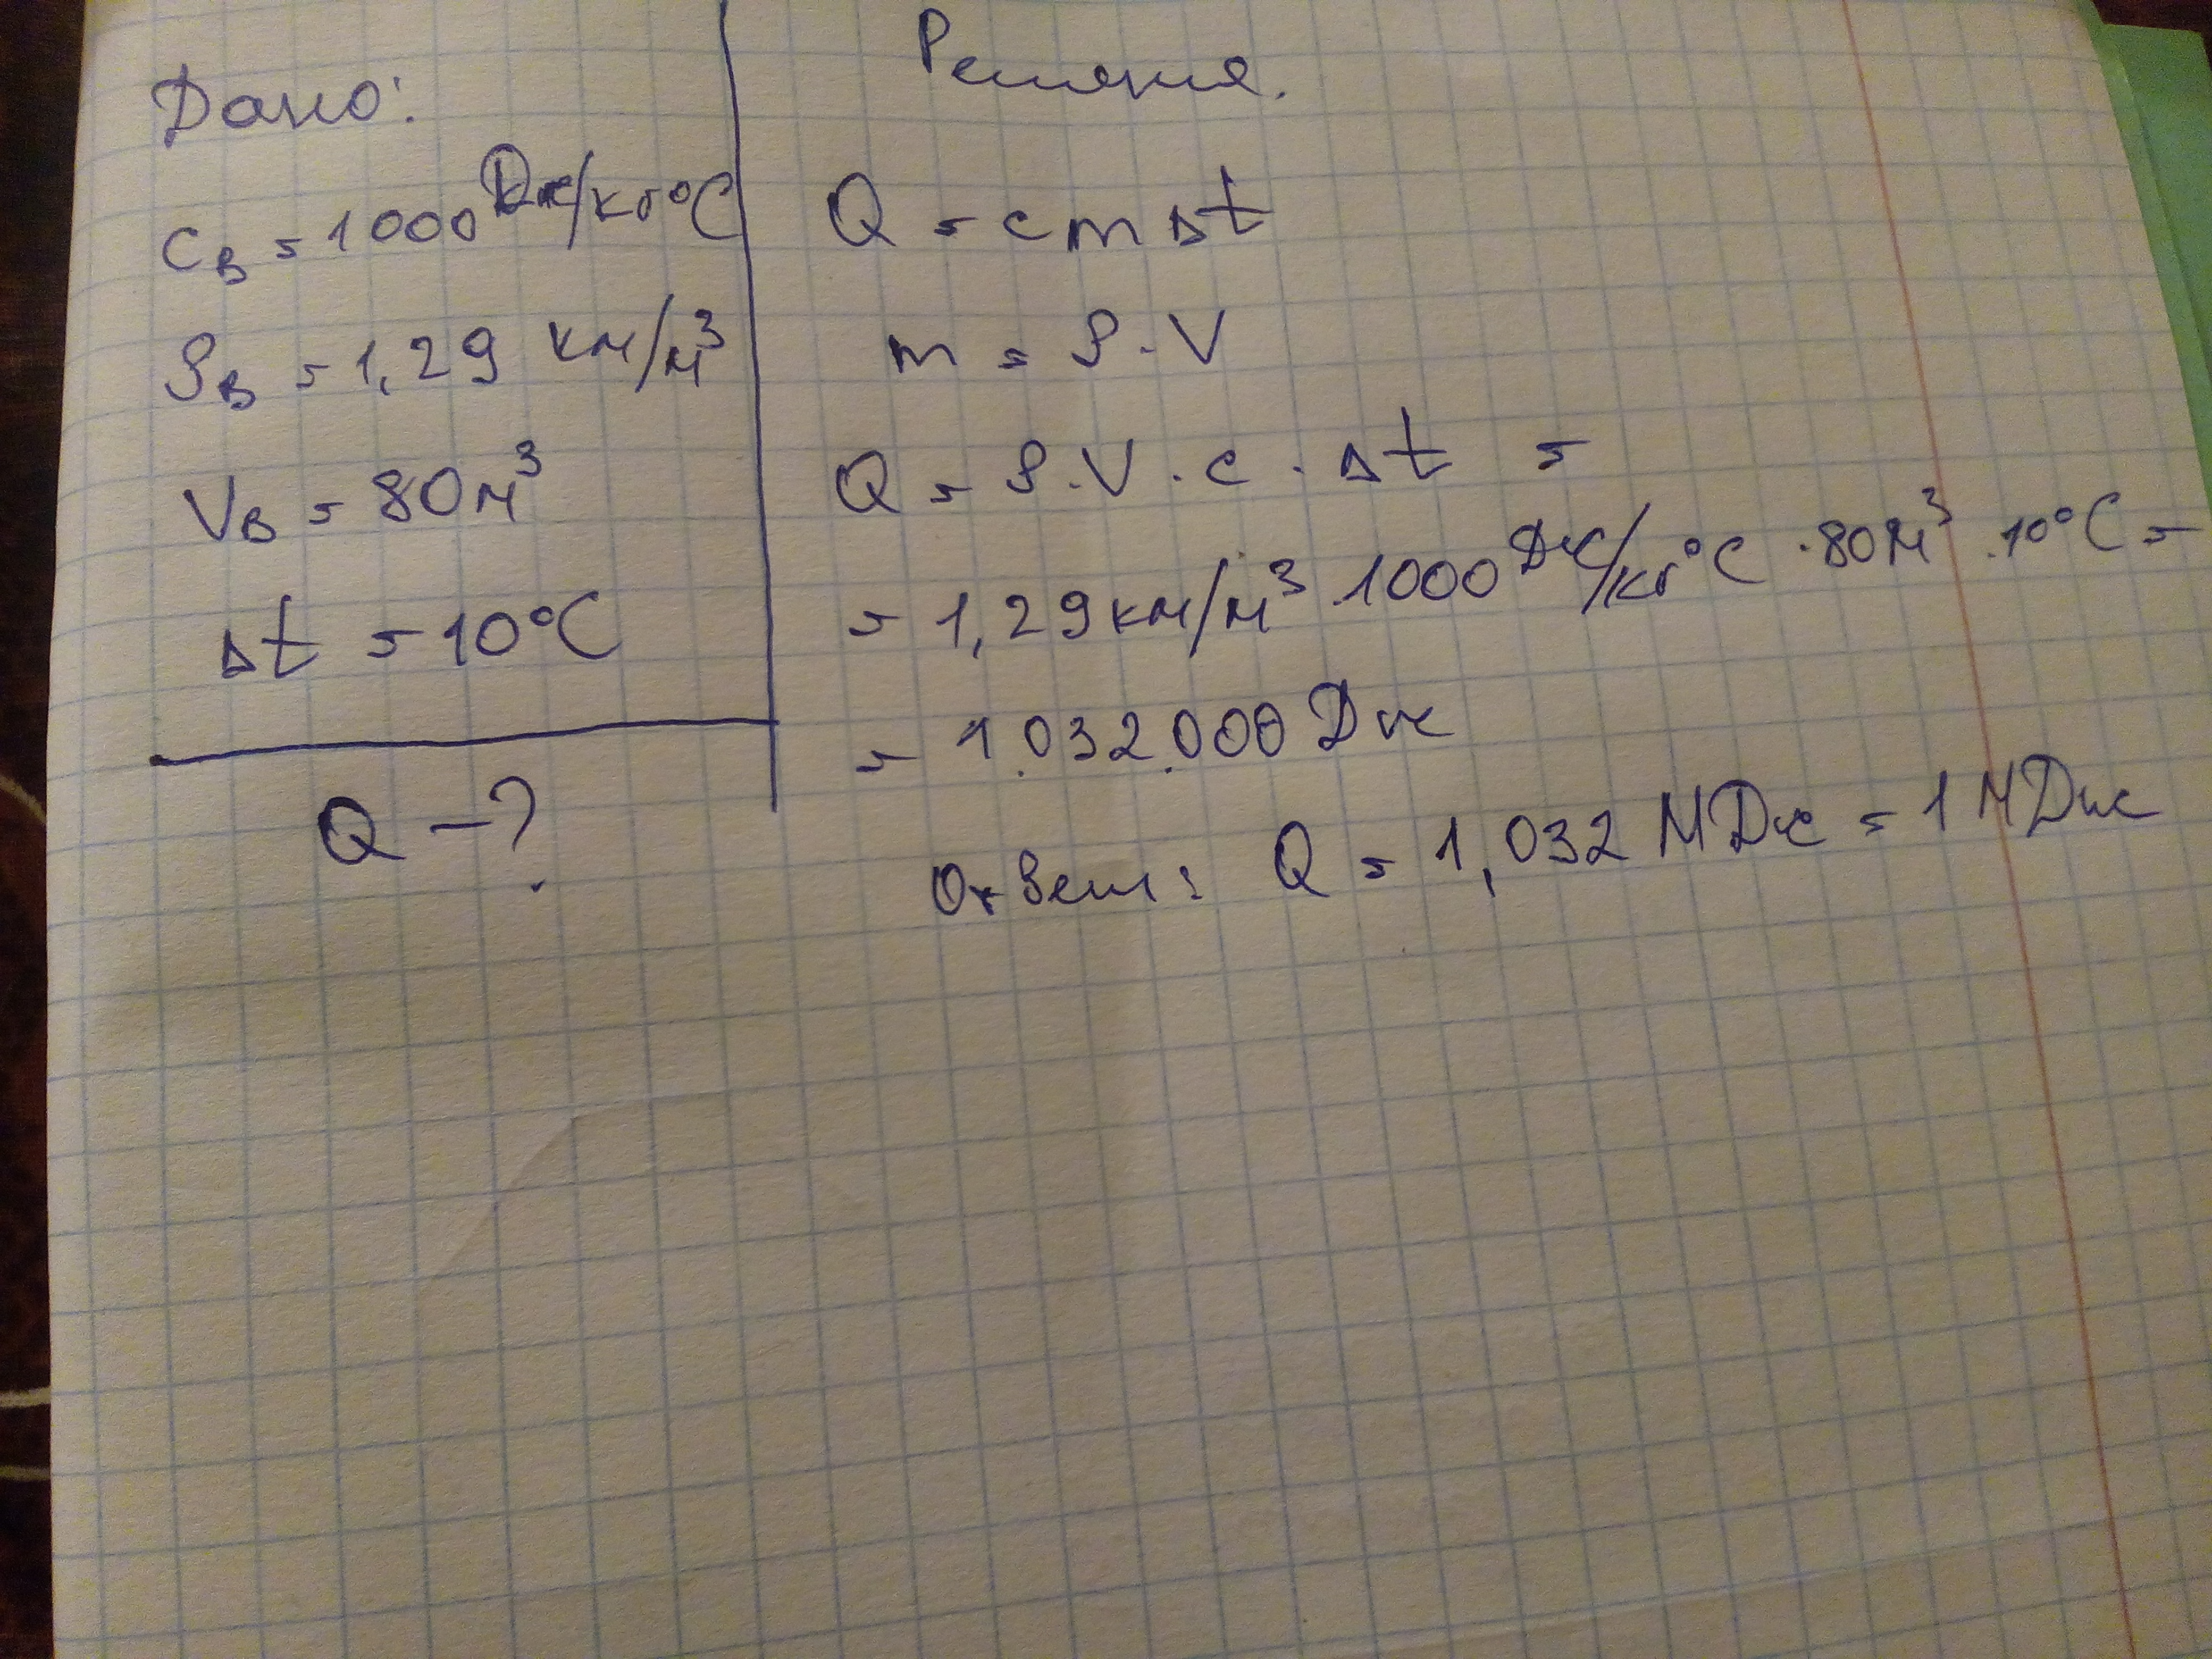 Дано:
c_в = 1000 Дж/кг°C
ρ_в = 1,29 км/м³
V_в = 80 м³
Δt = 10°C
Q - ?
Решения.
Q = c m Δt
m = ρ · V
Q = ρ · V · c · Δt =
= 1,29 км/м³ · 1000 Дж/кг°C · 80 м³ · 10°C =
= 1.032.000 Дж
Ответ: Q = 1,032 МДж = 1 МДж